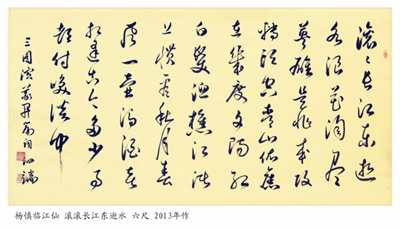 滚々长江东逝
水浪花淘尽
英雄是非成败
转头空青山依旧
在几度夕阳红
白发渔樵江渚
上惯看秋月春
风一壶浊酒喜
相逢古今多少事
都付笑谈中
三国演义开篇词
杨慎临江仙 滚滚长江东逝水 六尺 2013年作